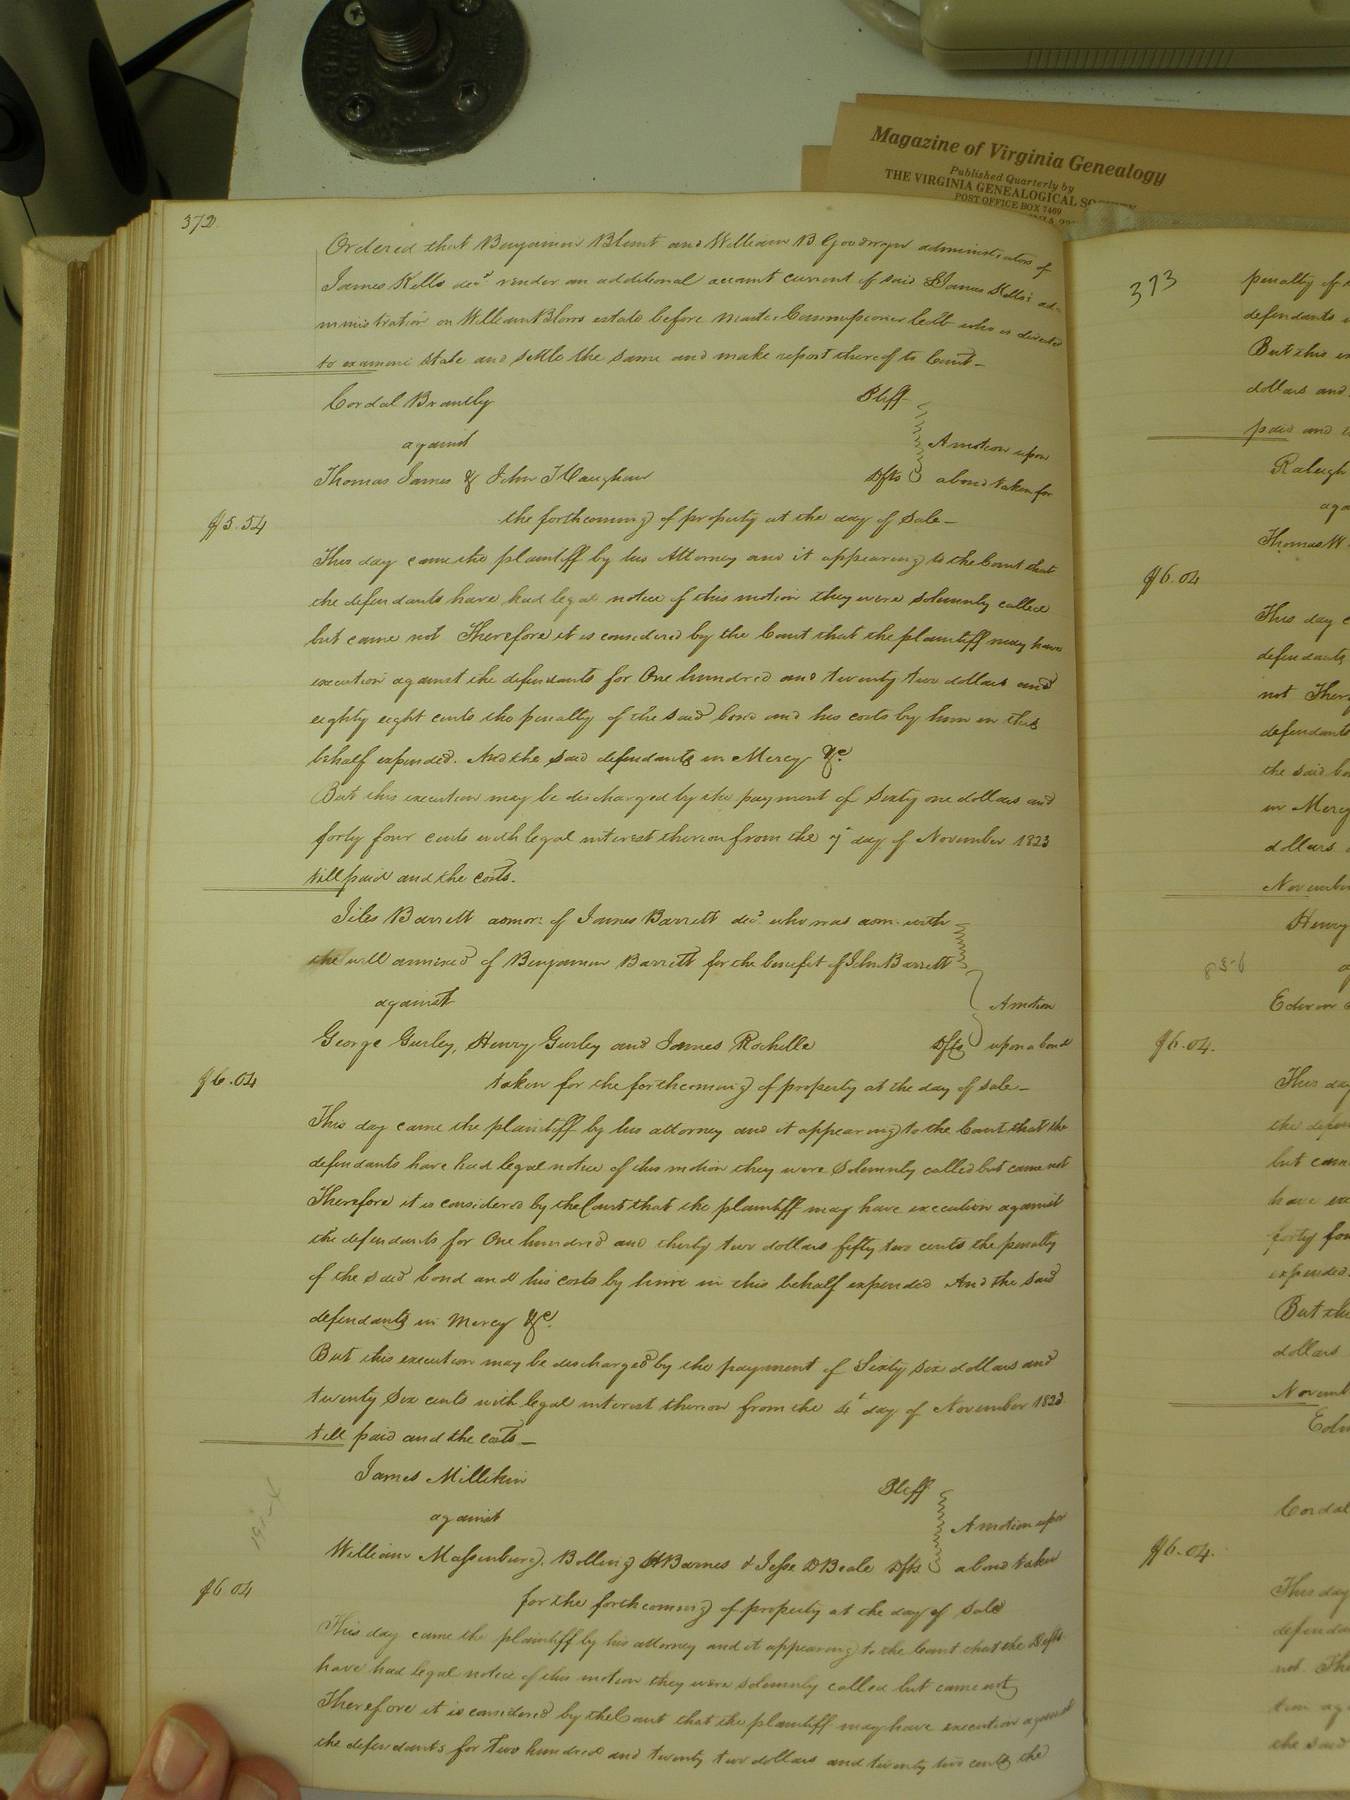 Magazine of Virginia Genealogy
Published Quarterly by
THE VIRGINIA GENEALOGICAL SOCIETY
POST OFFICE BOX 7469
372
Ordered that Benjamin Blunt and William B Goodwyn administrators of
James Kello decd. render an additional account current of said James Kello's ad-
ministration on William Blows estate before Master Commissioner Cobb who is directed
to examine state and settle the same and make report thereof to Court—
Cordal Brantly Pltff
against A motion upon
Thomas James & John T Vaughan Dfts a bond taken for
$5.54 the forthcoming of property at the day of sale—
This day came the plaintiff by his Attorney and it appearing to the Court that
the defendants have had legal notice of this motion they were solemnly called
but came not Therefore it is considered by the Court that the plaintiff may have
execution against the defendants for One hundred and twenty two dollars and
eighty eight cents the penalty of the said bond and his costs by him in this
behalf expended. And the said defendants in Mercy &c.
But this execution may be discharged by the payment of Sixty one dollars and
forty four cents with legal interest thereon from the day of November 1823
till paid and the costs.
Giles Barrett admor. of James Barrett decd. who was adm. with
the will annexed of Benjamin Barrett for the benefit of John Barrett
against A motion
George Gurley, Henry Gurley and James Rochelle Dfts upon a bond
$6.04 taken for the forthcoming of property at the day of sale—
This day came the plaintiff by his attorney and it appearing to the Court that the
defendants have had legal notice of this motion they were Solemnly called but came not
Therefore it is considered by the Court that the plaintiff may have execution against
the defendants for One hundred and thirty two dollars fifty two cents the penalty
of the said bond and his costs by him in this behalf expended And the said
defendants in Mercy &c.
But this execution may be discharged by the payment of Sixty six dollars and
twenty Six cents with legal interest thereon from the day of November 1823
till paid and the costs—
James Millikin Pltff
against A motion upon
William Massenburg, Bolling H Barnes & Jesse D Beale Dfts a bond taken
$6.04 for the forthcoming of property at the day of Sale
This day came the plaintiff by his attorney and it appearing to the Court that the Defts
have had legal notice of this motion they were solemnly called but came not
Therefore it is considered by the Court that the plaintiff may have execution against
the defendants for Two hundred and twenty two dollars and twenty two cents the
373
penalty of
defendants
But this
dollars and
paid and
Raleigh
Thomas W
$6.04
This day
defendants
not
defendants
the said
in Mercy
dollars
November
Henry
Edwin
$6.04.
This day
the
but came
have
forty
expended
But the
dollars
Cordal
$6.04.
This day
not
the said